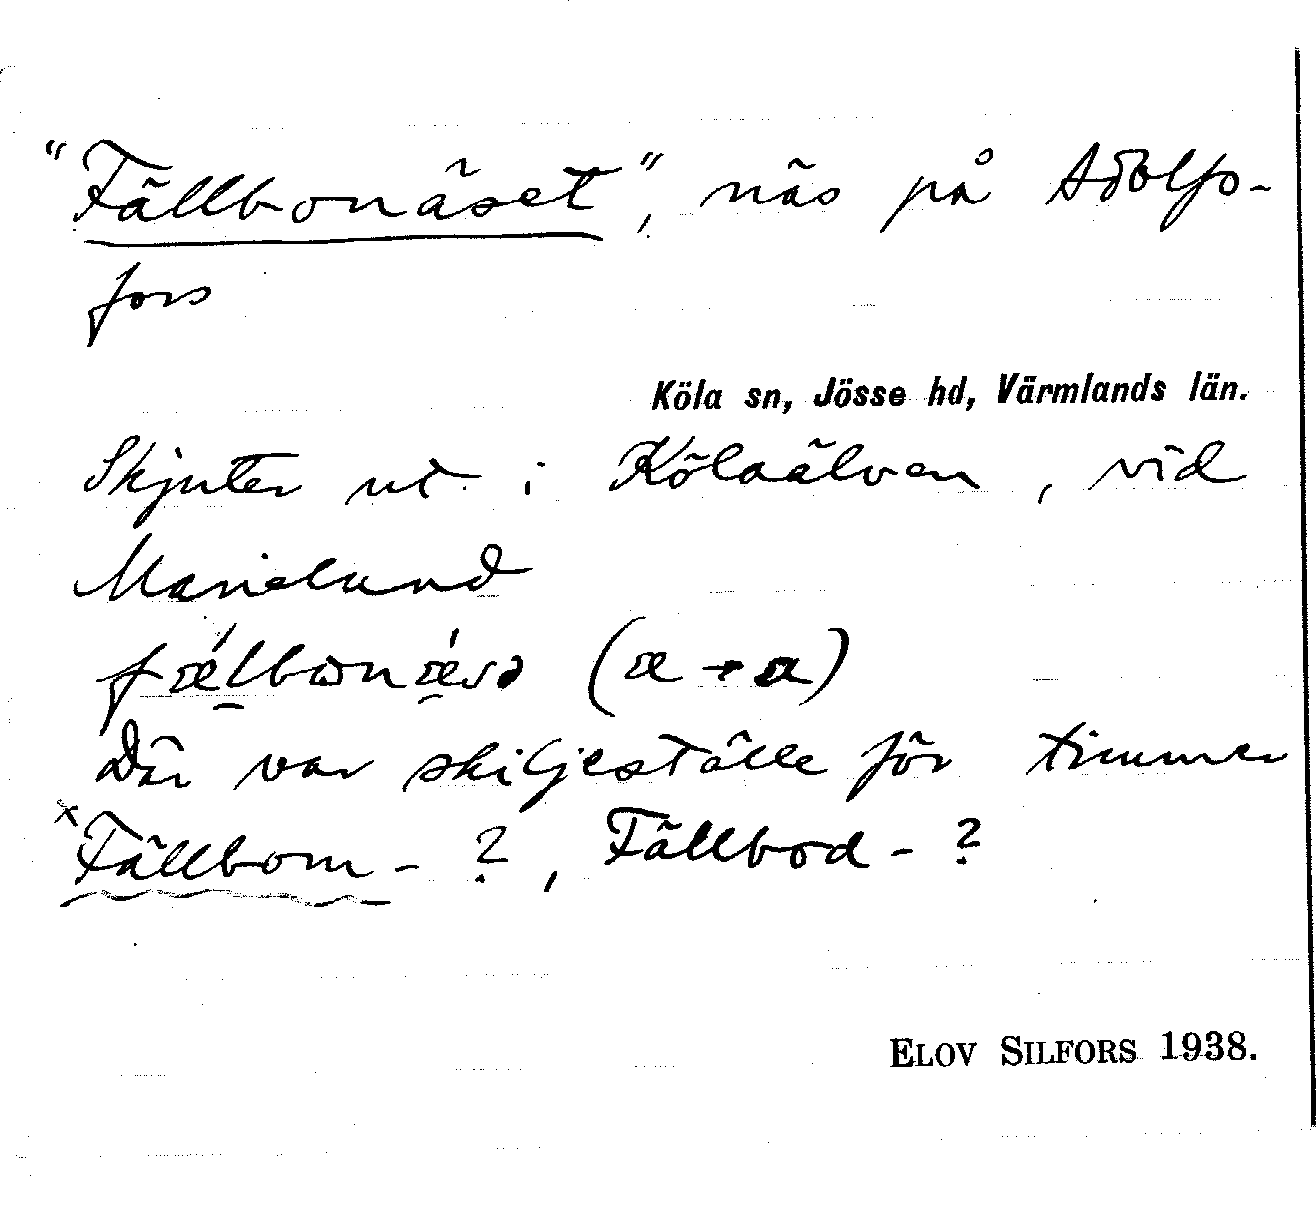 "Fällbonäset", näs på Adolfs-
fors
Köla sn, Jösse hd, Värmlands län.
Skjuter ut i Kölaälven, vid
Marielund
(æ → a)
Där var skiljeställe för timmer
x Fällbom- ?, Fällbod- ?
ELOV SILFORS 1938.